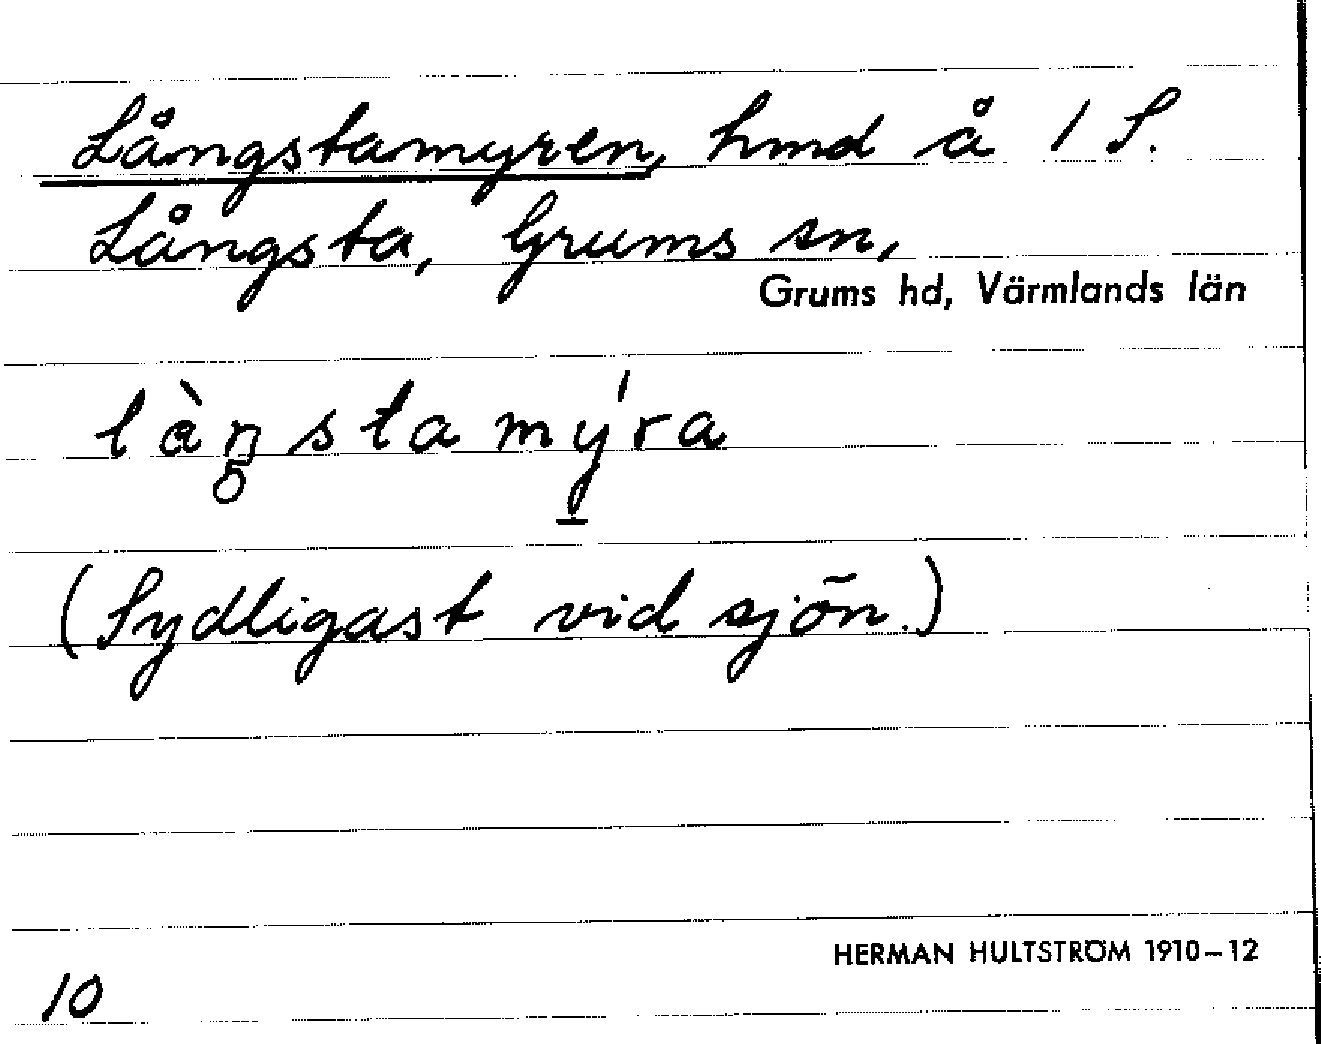 Långstamyren, hmd å 1 S.
Långsta, Grums sn,
Grums hd, Värmlands län
làŋ̥stamý̱ra
(Sydligast vid sjön.)
HERMAN HULTSTRÖM 1910–12
10